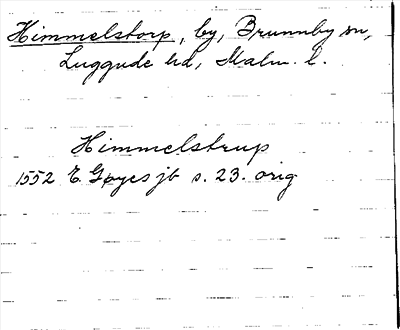 Himmelstorp, by, Brunnby sn,
Luggude hd, Malm. l.
Himmelstrup
1552 E Gøyes jb s. 23. orig